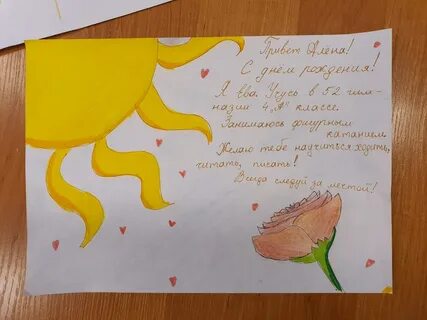 Привет Алёна!
С днём рождения!
Я Ева. Учусь в 52 гим-
назии 4 „А" классе.
Занимаюсь фигурным
катанием
Желаю тебе научиться ходить,
читать, писать!
Всегда следуй за мечтой!